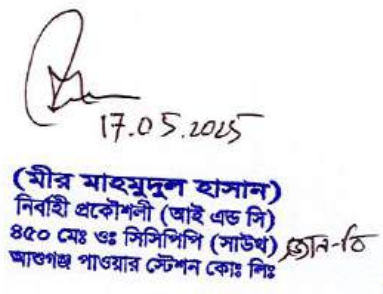 17.05.2025
(মীর মাহমুদুল হাসান)
নির্বাহী প্রকৌশলী (আই এন্ড সি)
৪৫০ মেঃ ওঃ সিসিপিপি (সাউথ)
আশুগঞ্জ পাওয়ার স্টেশন কোঃ লিঃ